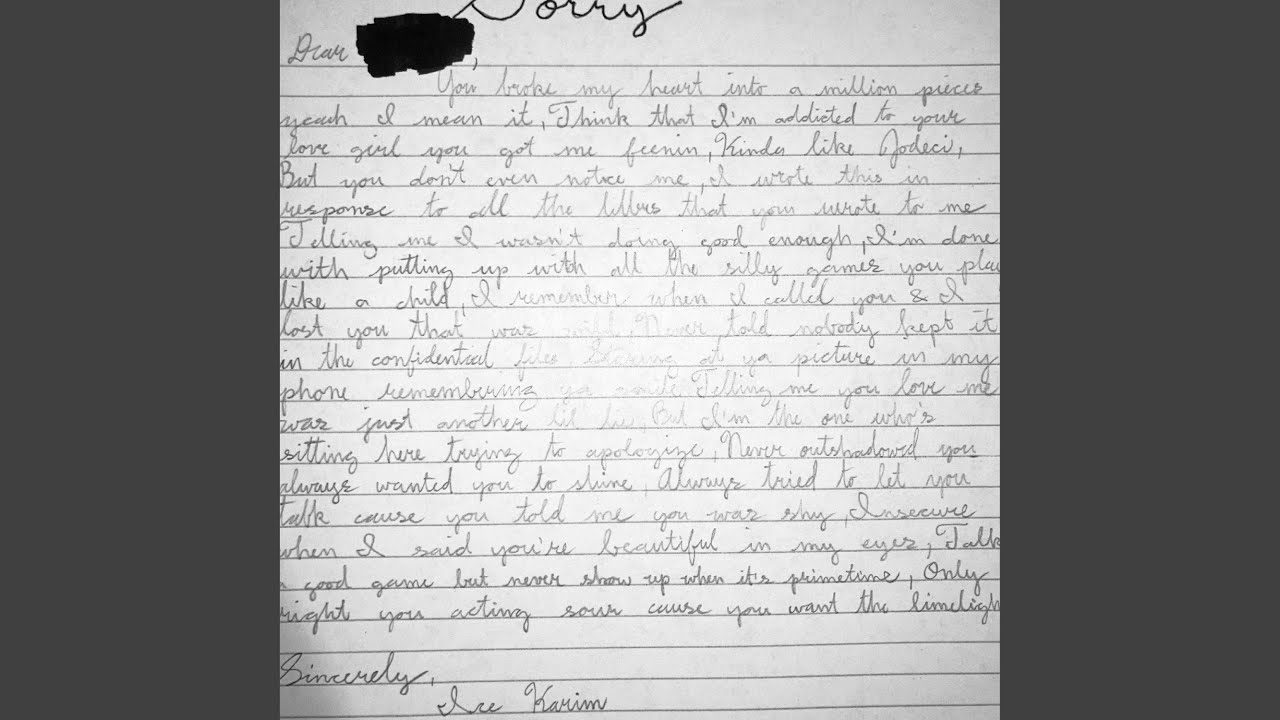 Sorry
Dear ,
You broke my heart into a million pieces
yeah I mean it, Think that I'm addicted to your
love girl you got me feenin, Kinda like Jodeci,
But you don't even notice me, I wrote this in
response to all the letters that you wrote to me
Telling me I wasn't doing good enough, I'm done
with putting up with all the silly games you play
like a child, I remember when I called you & I
lost you that was wild, Never told nobody kept it
in the confidential files Staring at ya picture in my
phone remembering ya smile, Telling me you love me
was just another lil lie, But I'm the one who's
sitting here trying to apologize, Never outshadowed you
always wanted you to shine, Always tried to let you
talk cause you told me you was shy, Insecure
when I said you're beautiful in my eyes, Talk
a good game but never show up when it's primetime, Only
right you acting sour cause you want the limeligh
Sincerely,
Ice Karim